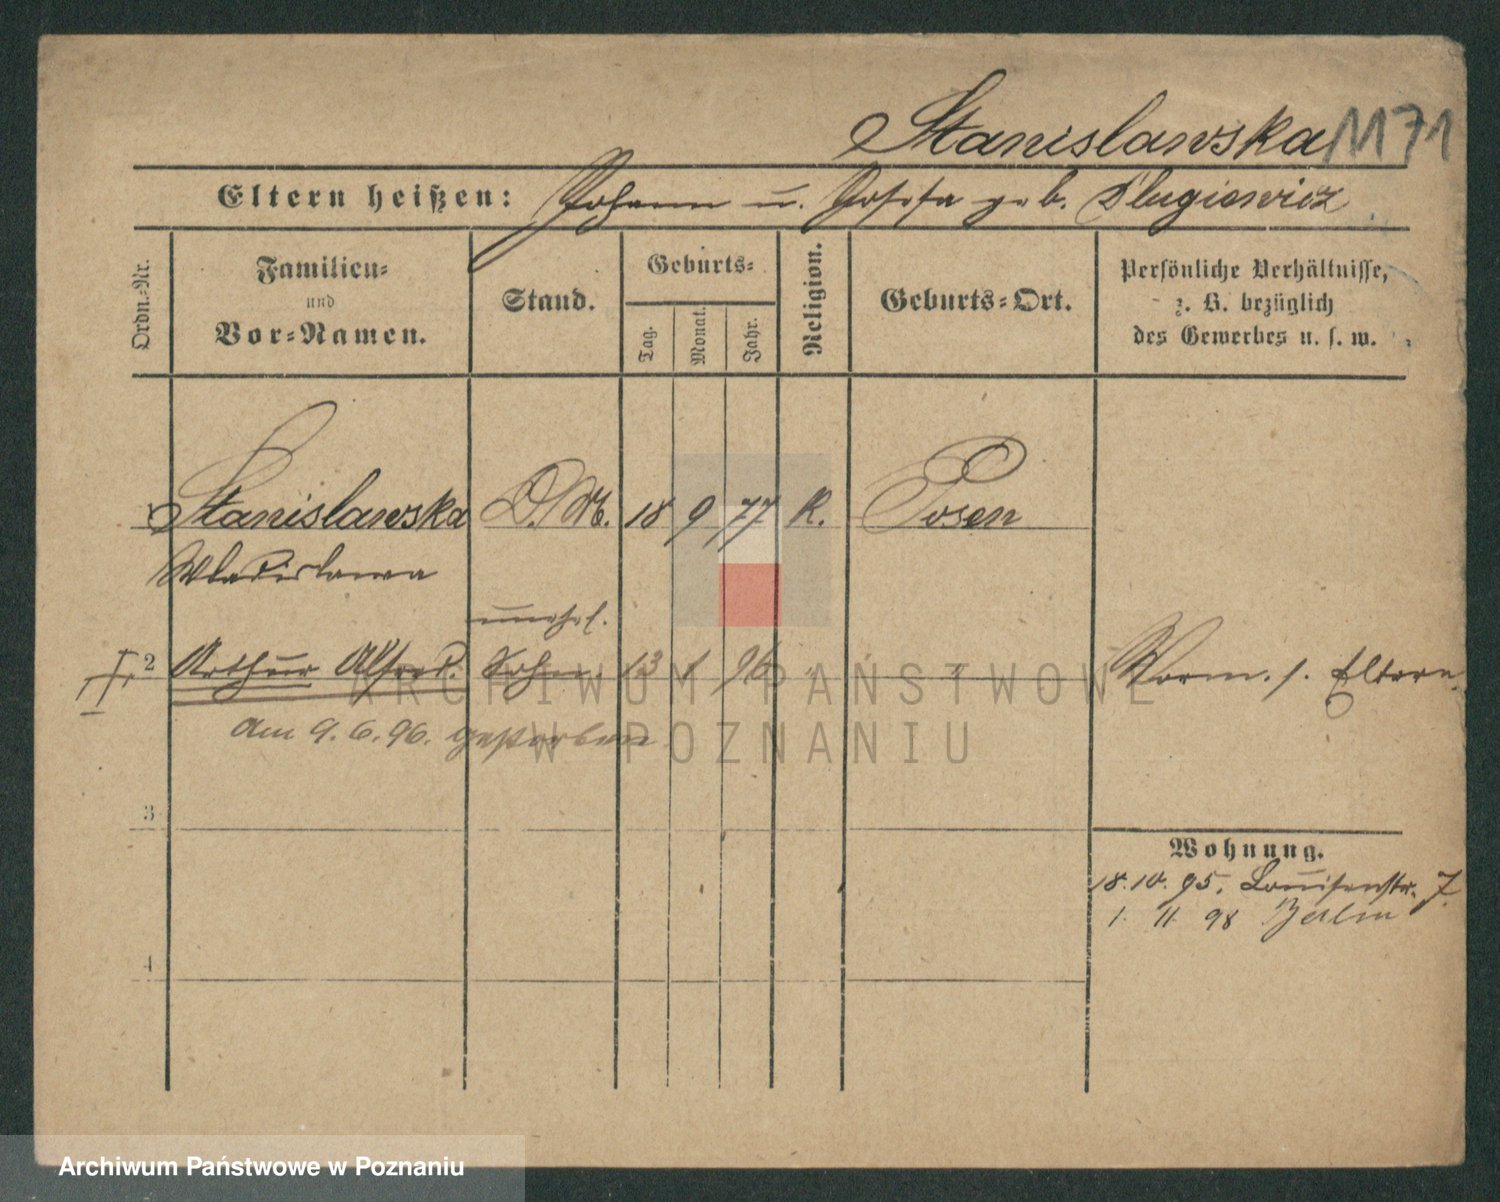 Stanislawska 1171
Eltern heißen: Johann u. Josefa geb. Dlugiewicz
Ordn.-Nr.
Familien-
und
Vor-Namen.
Stand.
Geburts-
Tag.
Monat.
Jahr.
Religion.
Geburts-Ort.
Persönliche Verhältnisse,
z. B. bezüglich
des Gewerbes u. s. w.
1 Stanislawska D.M. 18 9 77 K. Posen
Wladislawa
unehel.
2 Arthur Alfred. Sohn. 13 1 96 " " Vorm. s. Eltern.
am 9.6.96. gestorben
3
Wohnung.
18.10.95. Louisenstr. 7.
1. 11. 98 Berlin
4
ARCHIWUM PAŃSTWOWE
W POZNANIU
Archiwum Państwowe w Poznaniu